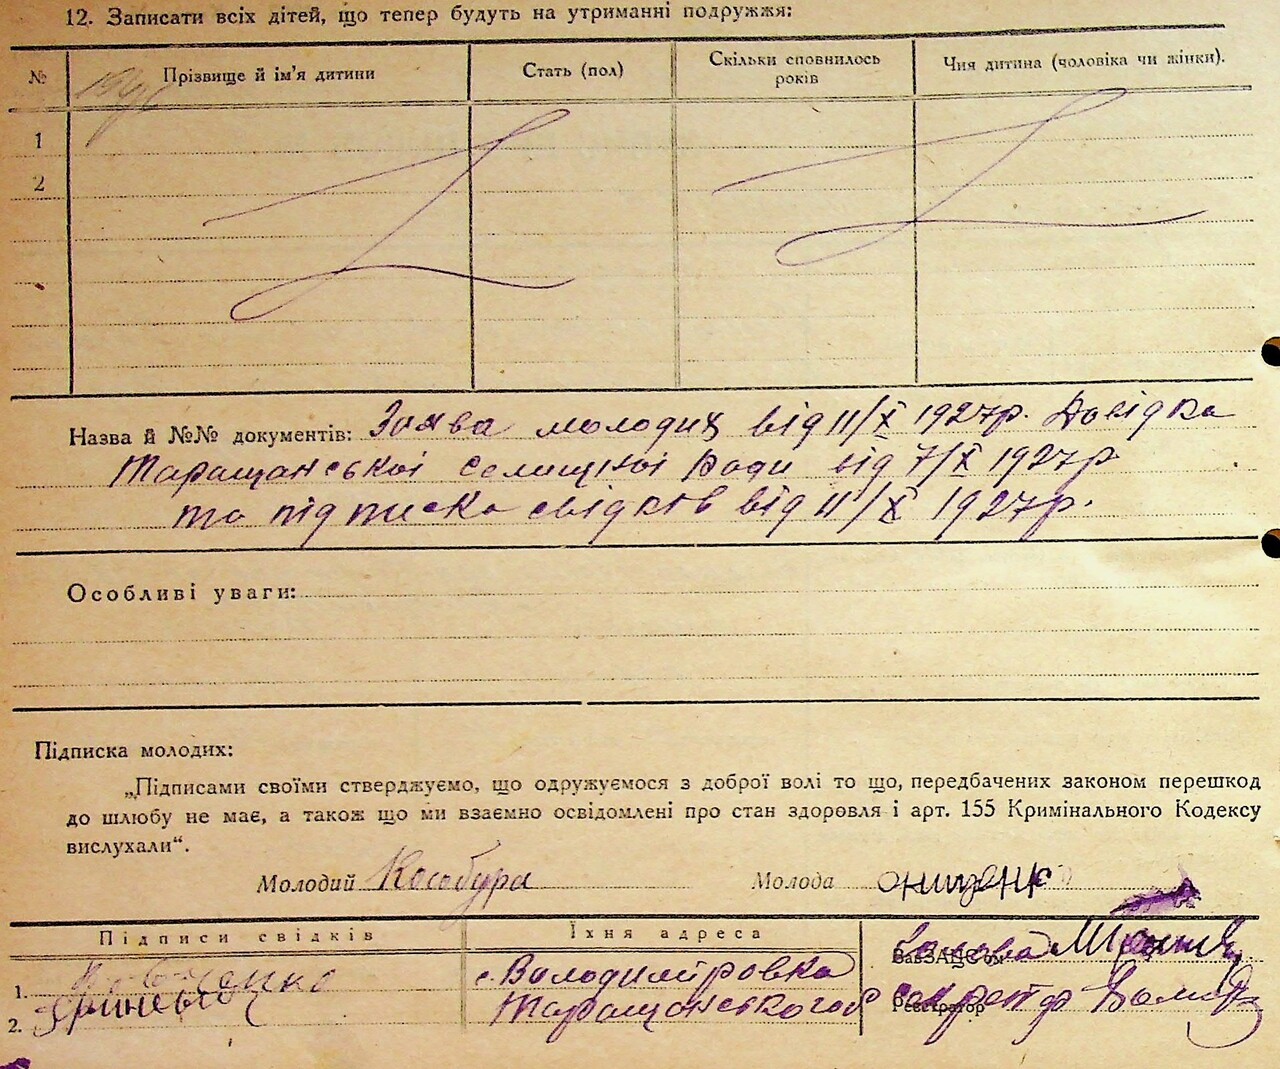 12. Записати всіх дітей, що тепер будуть на утриманні подружжя:
№ Прізвище й ім'я дитини Стать (пол) Скільки сповнилось років Чия дитина (чоловіка чи жінки).
1
2
Назва й №№ документів: Заява молодих від 11/X 1927р. Довідка
Таращанської селищної ради від 7/X 1927р
та підписка свідків від 11/X 1927р.
Особливі уваги:
Підписка молодих:
„Підписами своїми стверджуємо, що одружуємося з доброї волі то що, передбачених законом перешкод
до шлюбу не має, а також що ми взаємно освідомлені про стан здоровля і арт. 155 Кримінального Кодексу
вислухали“.
Молодий Кособура Молода Онищенко
Підписи свідків Їхня адреса
Голова
ЗавЗАГС'ом
1. с. Володимировка
2. Таращанського секретар
Реєстратор